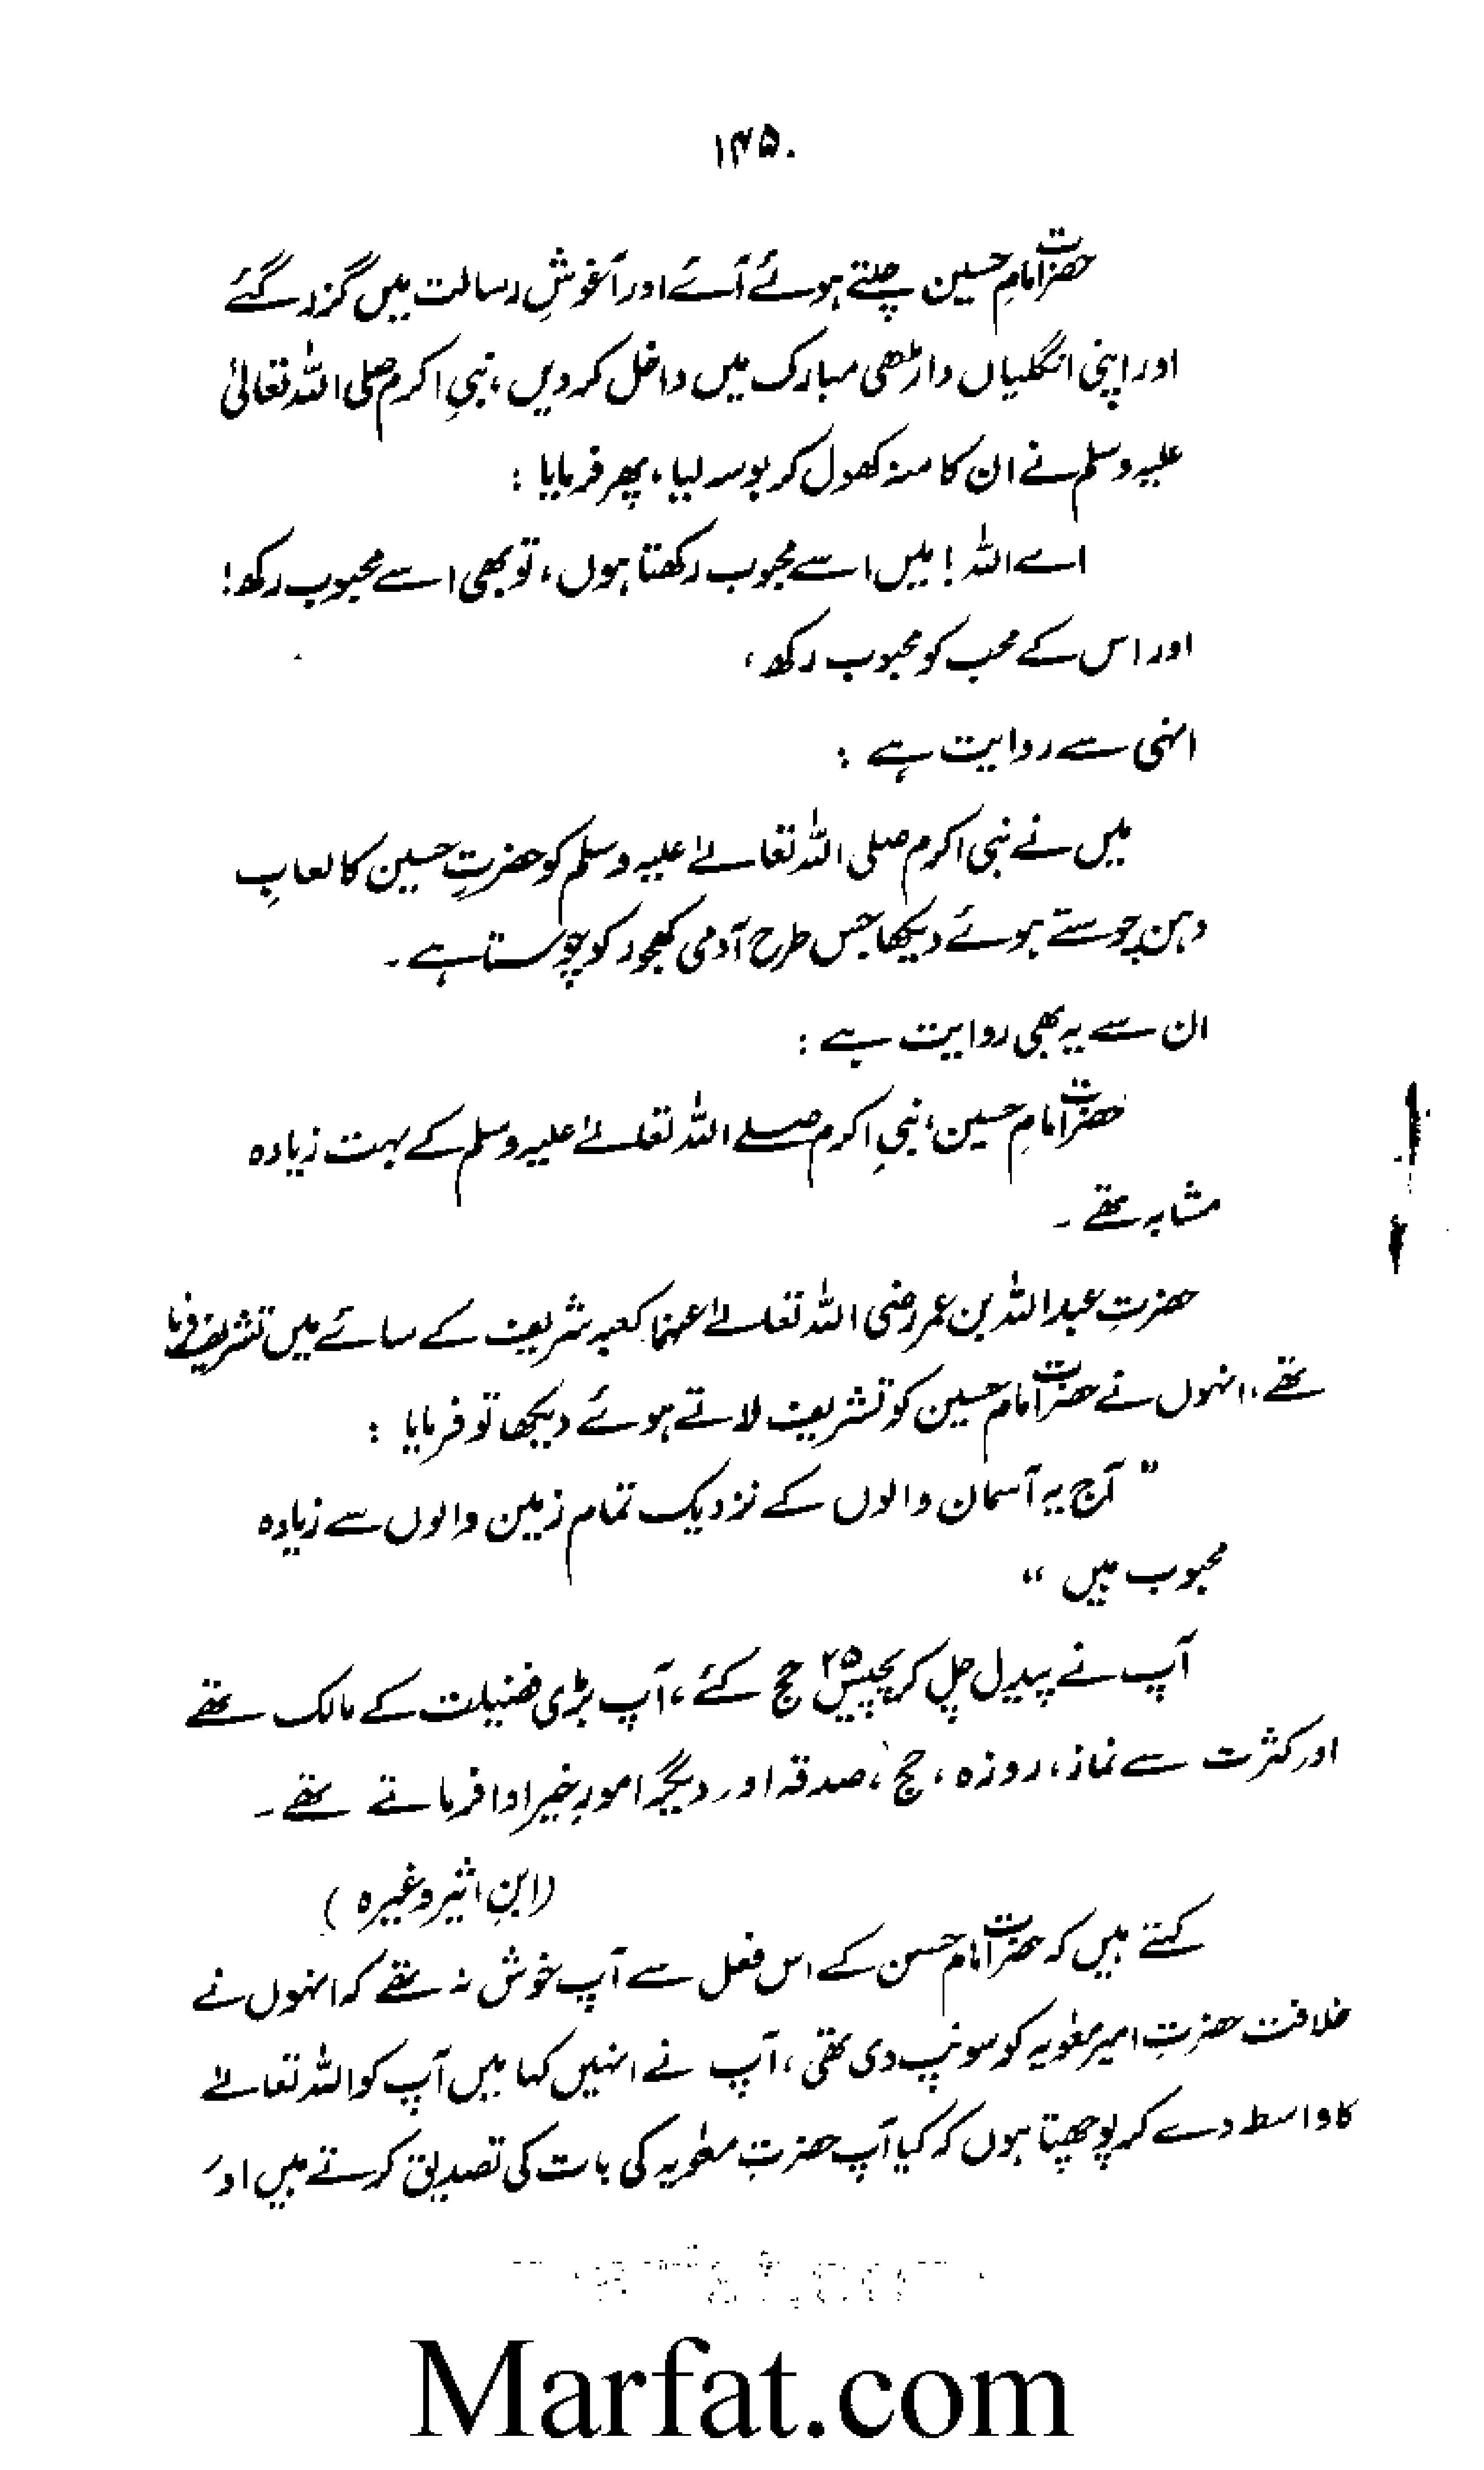 ۱۴۵۰
حضرت امامِ حسین چلتے ہوئے آئے اور آغوشِ رسالت میں گزر گئے
اور اپنی انگلیاں داڑھی مبارک میں داخل کر دیں، نبیِ اکرم صلی اللہ تعالیٰ
علیہ وسلم نے ان کا منہ کھول کر بوسہ لیا، پھر فرمایا :
اے اللہ ! میں اسے محبوب رکھتا ہوں، تو بھی اسے محبوب رکھ!
اور اس کے محب کو محبوب رکھ،
انہی سے روایت ہے :
میں نے نبی اکرم صلی اللہ تعالےٰ علیہ وسلم کو حضرتِ حسین کا لعابِ
دہن چوستے ہوئے دیکھا جس طرح آدمی کھجور کو چوستا ہے۔
ان سے یہ بھی روایت ہے :
حضرت امامِ حسین، نبیِ اکرم صلے اللہ تعالےٰ علیہ وسلم کے بہت زیادہ
مشابہ تھے ۔
حضرتِ عبداللہ بن عمر رضی اللہ تعالےٰ عنہما کعبہ شریف کے سائے میں تشریف فرما
تھے، انہوں نے حضرت امام حسین کو تشریف لاتے ہوئے دیکھا تو فرمایا :
" آج یہ آسمان والوں کے نزدیک تمام زمین والوں سے زیادہ
محبوب ہیں "
آپ نے پیدل چل کر پچیس ۲۵ حج کئے، آپ بڑی فضیلت کے مالک تھے
اور کثرت سے نماز، روزہ، حج، صدقہ اور دیگر امورِ خیر ادا فرماتے تھے۔
(ابنِ اثیر وغیرہ)
کہتے ہیں کہ حضرت امام حسن کے اس فعل سے آپ خوش نہ تھے کہ انہوں نے
خلافت حضرتِ امیر معٰویہ کو سونپ دی تھی، آپ نے انہیں کہا میں آپ کو اللہ تعالےٰ
کا واسطہ دے کر پوچھتا ہوں کہ کیا آپ حضرتِ معٰویہ کی بات کی تصدیق کرتے ہیں اور
Marfat.com